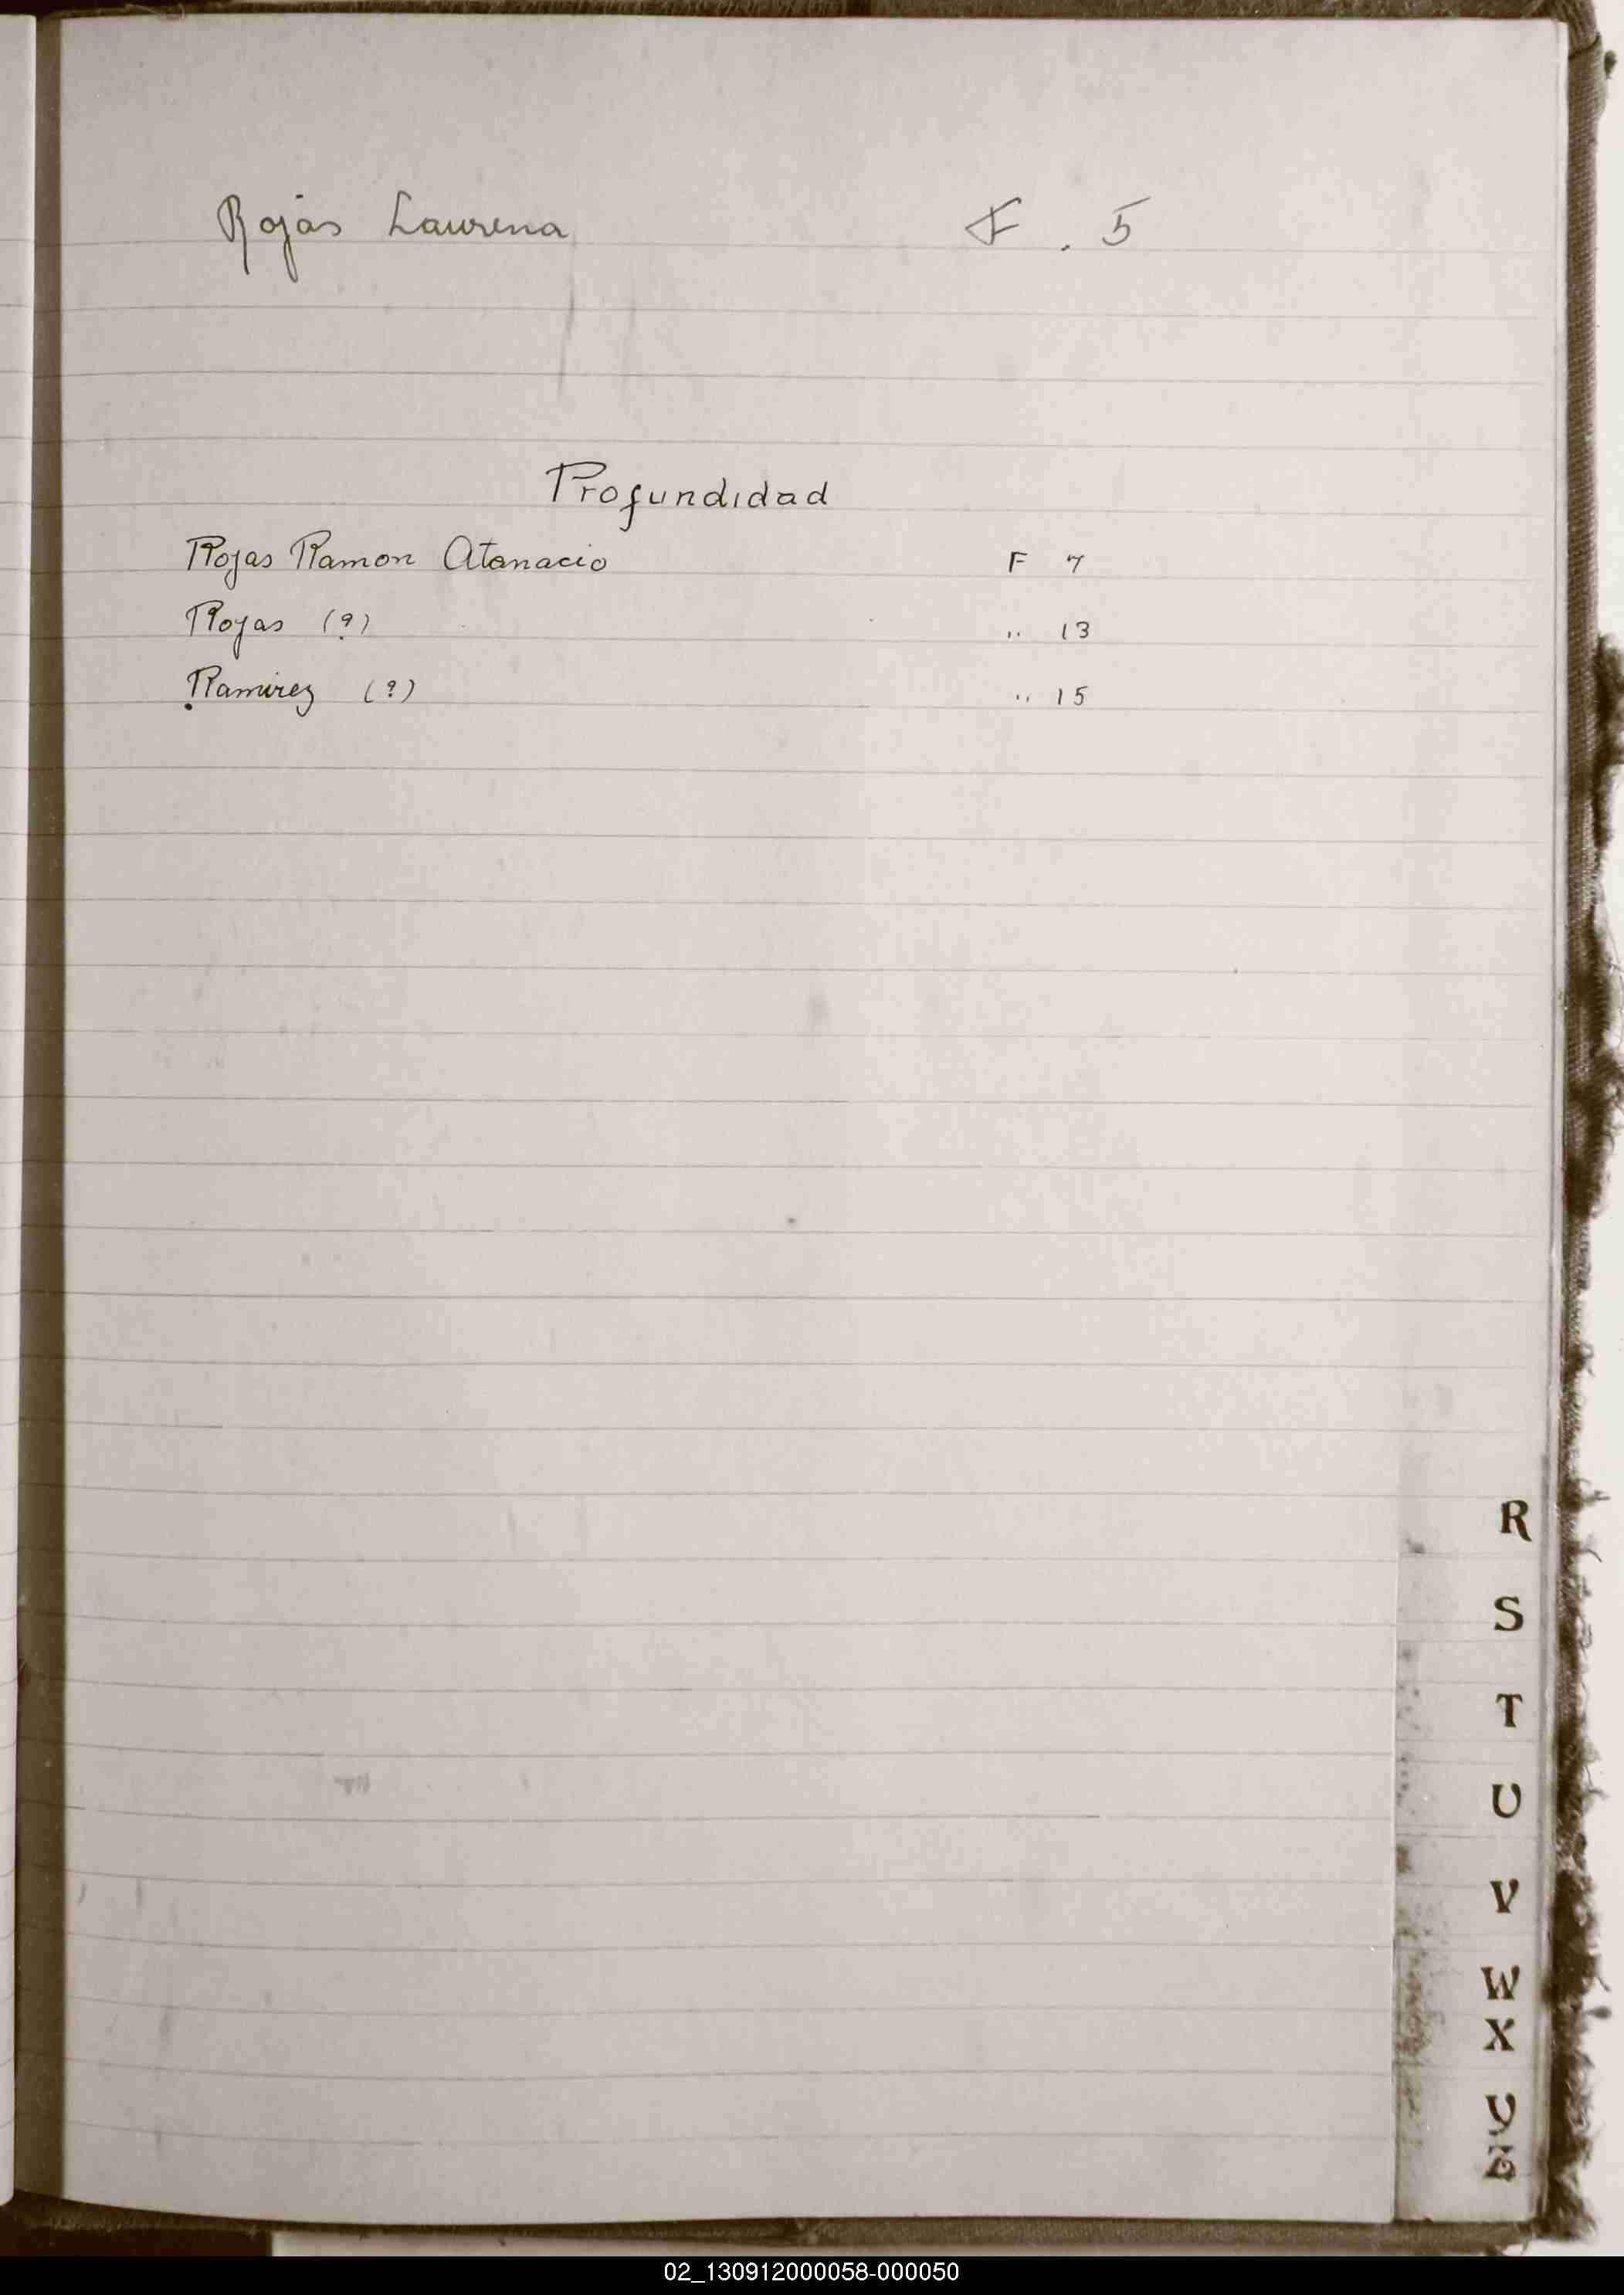 Rojas Laurena F. 5
Profundidad
Rojas Ramon Atanacio F 7
Rojas (?) " 13
Ramirez (?) " 15
R
S
T
U
V
W
X
Y
Z
02_130912000058-000050